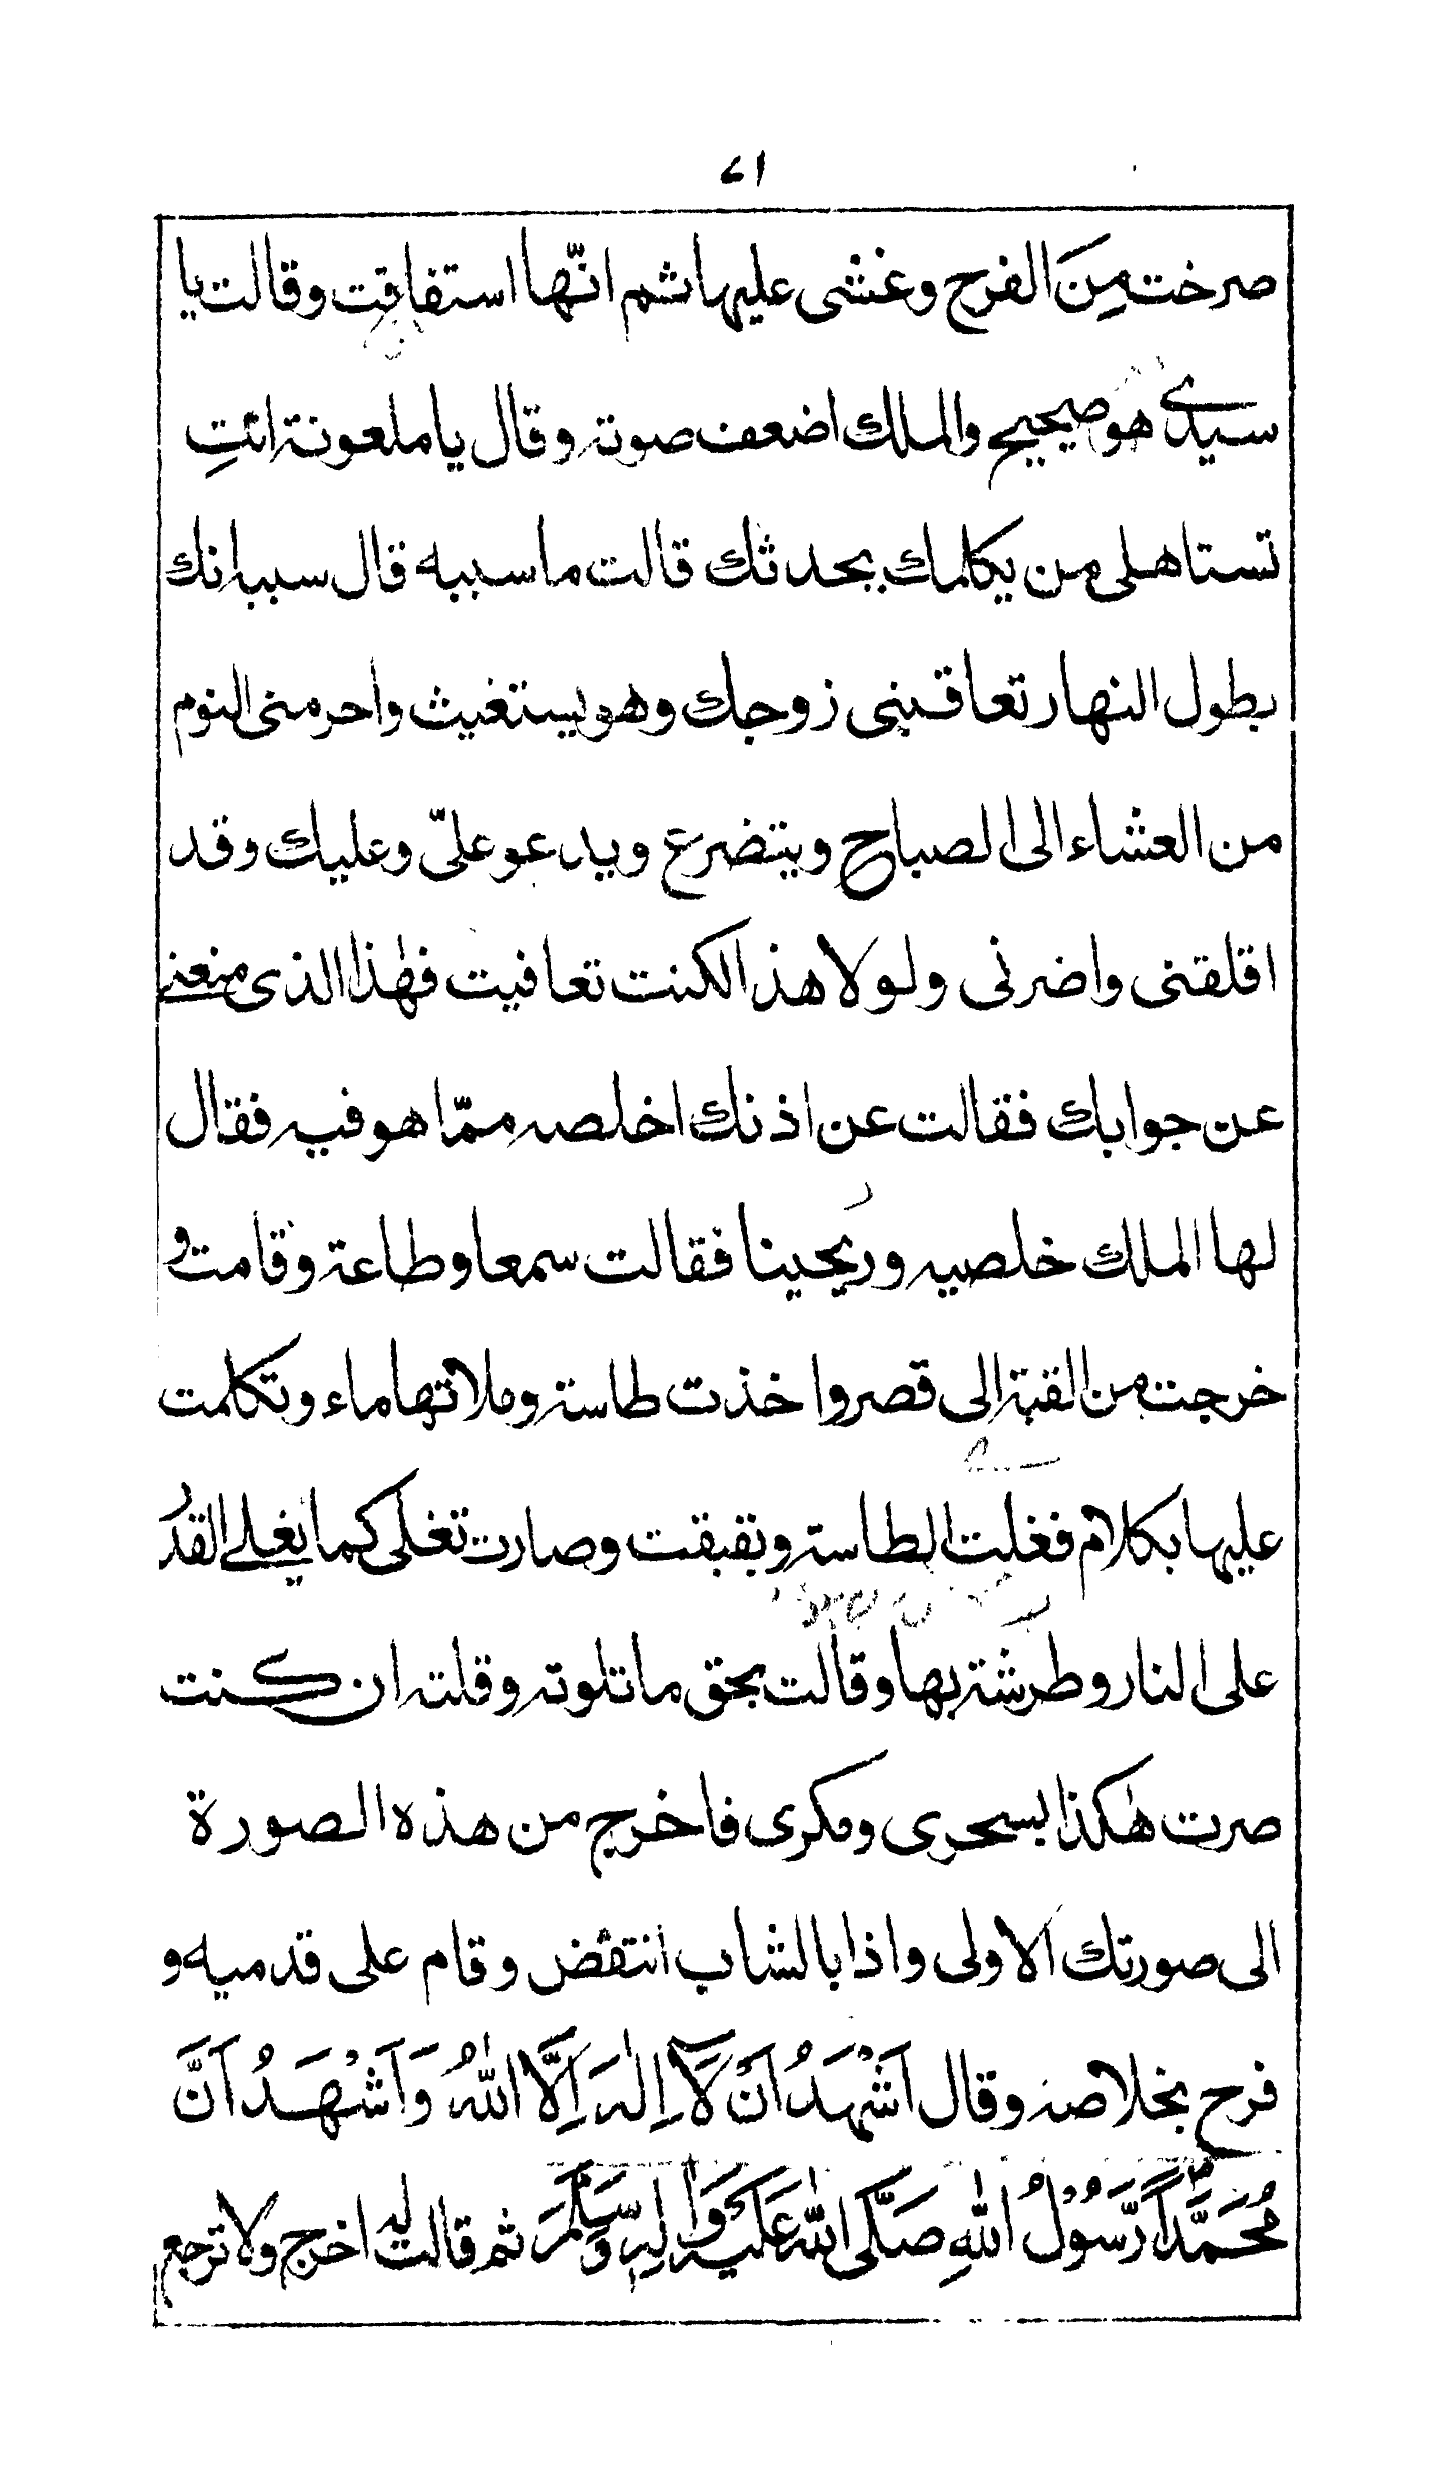 ٧١
صرخت مِنَ الفرح وغشى عليها ثم انّها استفاقت وقالت يا
سيدى هو صحيح والملك اضعف صوته وقال يا ملعونة انتِ
تستاهلى من يكلمك بحدثك قالت ما سببه قال سببه انك
بطول النهار تعاقبنى زوجك وهو يستغيث واحرمنى النوم
من العشاء الى الصباح ويتضرع ويدعو علىّ وعليك وقد
اقلقنى واضرنى ولولا هذا لكنت تعافيت فهذا الذى منعنى
عن جوابك فقالت عن اذنك اخلصه ممّا هو فيه فقال
لها الملك خلصيه وريحينا فقالت سمعا وطاعة وقامت و
خرجت من القبة الى قصر واخذت طاسة وملاتها ماء وتكلمت
عليها بكلام فغلت الطاسة وبقبقت وصارت تغلى كما يغلى القدر
على النار وطرشته بها وقالت بحق ما تلوته وقلته ان كنت
صرت هكذا بسحرى ومكرى فاخرج من هذه الصورة
الى صورتك الاولى واذا بالشاب انتفض وقام على قدميه و
فرح بخلاصه وقال اَشْهَدُ اَنْ لَّا اِلٰهَ اِلَّا اللّٰهُ وَاَشْهَدُ اَنَّ
مُحَمَّدًا رَّسُوْلُ اللّٰهِ صَلَّى اللّٰهُ عَلَيْهِ وَاٰلِهٖ وَسَلَّمَ ثم قالت له اخرج ولا ترجع